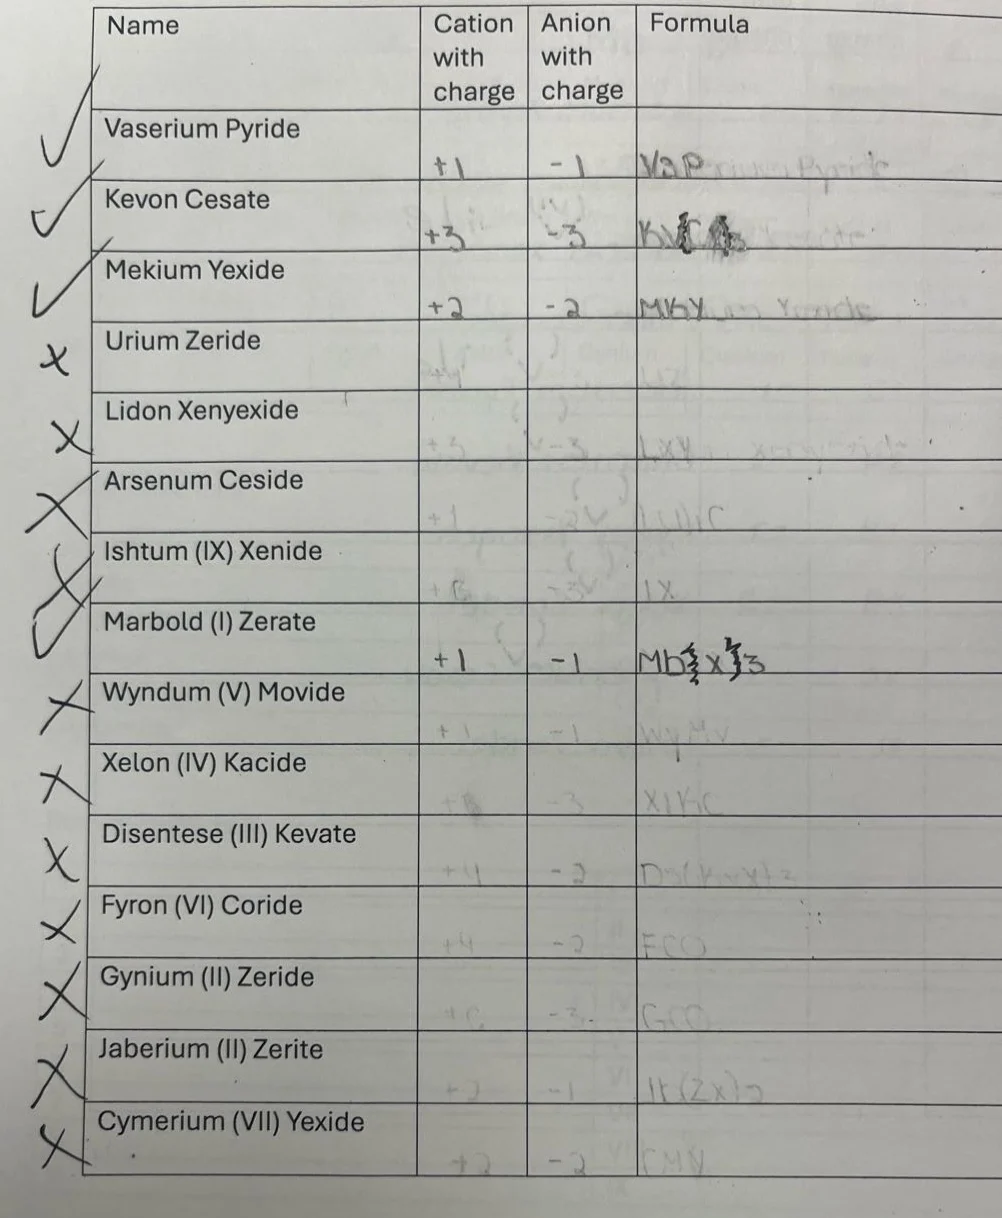 Name Cation with charge Anion with charge Formula
Vaserium Pyride +1 -1 VaP
Kevon Cesate +3 -3
Mekium Yexide +2 -2 MkY
Urium Zeride
Lidon Xenyexide +3 -3 LXY
Arsenum Ceside +1
Ishtum (IX) Xenide -3 IX
Marbold (I) Zerate +1 -1 Mb x 3
Wyndum (V) Movide +1 -1 WyMv
Xelon (IV) Kacide -3 XlKC
Disentese (III) Kevate +4 -2
Fyron (VI) Coride +4 -2 FCO
Gynium (II) Zeride -3 GCO
Jaberium (II) Zerite -1
Cymerium (VII) Yexide +2 -2